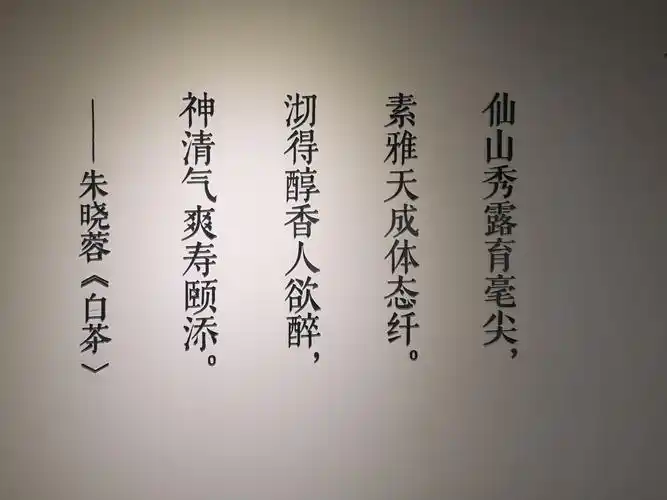 仙山秀露育毫尖，
素雅天成体态纤。
沏得醇香人欲醉，
神清气爽寿颐添。
——朱晓蓉《白茶》